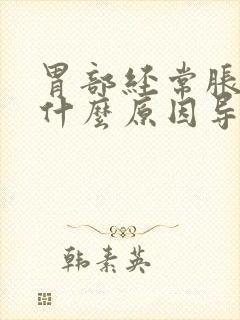 胃部经常胀
什麼原因导
韩素英